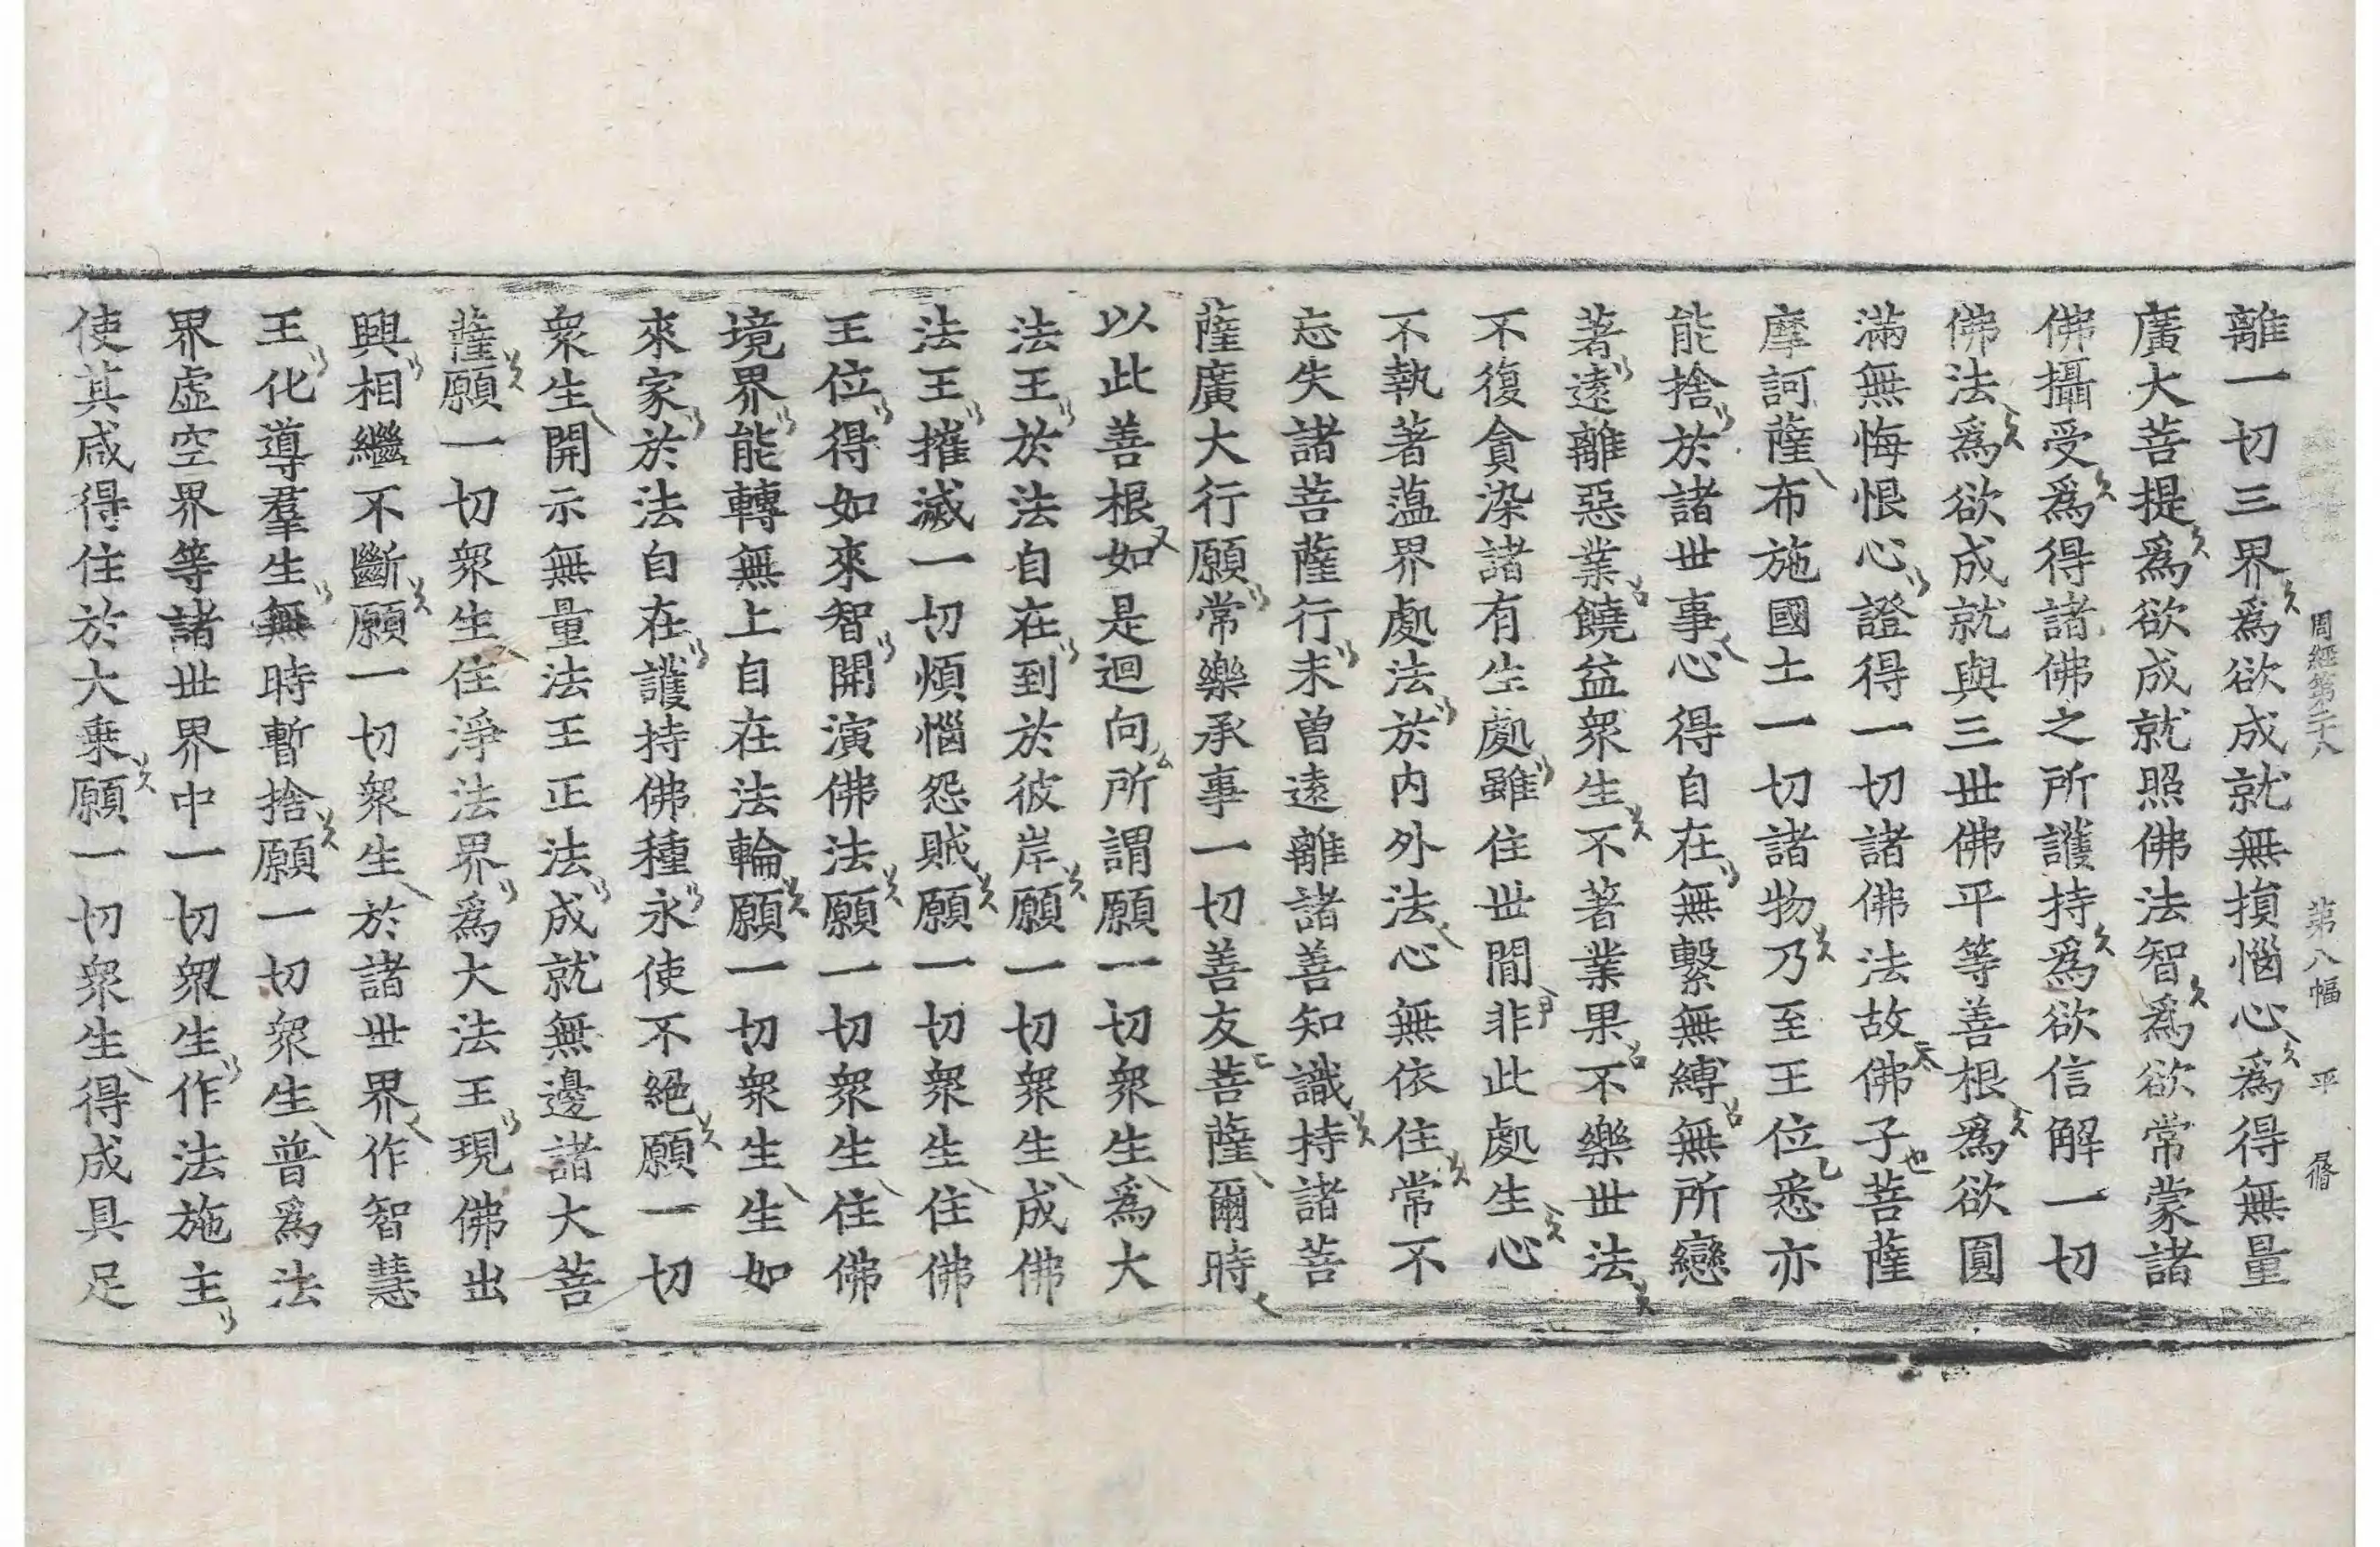 周經第二十八 第八幅 平
離一切三界爲欲成就無損惱心爲得無量
廣大菩提爲欲成就照佛法智爲欲常蒙諸
佛攝受爲得諸佛之所護持爲欲信解一切
佛法爲欲成就與三世佛平等善根爲欲圓
滿無悔恨心證得一切諸佛法故佛子菩薩
摩訶薩布施國土一切諸物乃至王位悉亦
能捨於諸世事心得自在無繫無縛無所戀
著遠離惡業饒益衆生不著業果不樂世法
不復貪染諸有生處雖住世間非此處生心
不執著蘊界處法於内外法心無依住常不
忘失諸菩薩行未曽遠離諸善知識持諸菩
薩廣大行願常樂承事一切善友菩薩爾時
以此善根如是迴向所謂願一切衆生爲大
法王於法自在到於彼岸願一切衆生成佛
法王摧滅一切煩惱怨賊願一切衆生住佛
王位得如來智開演佛法願一切衆生住佛
境界能轉無上自在法輪願一切衆生生如
來家於法自在護持佛種永使不絕願一切
衆生開示無量法王正法成就無邊諸大菩
薩願一切衆生住淨法界爲大法王現佛出
興相繼不斷願一切衆生於諸世界作智慧
王化導羣生無時暫捨願一切衆生普爲法
界虛空界等諸世界中一切衆生作法施主
使其咸得住於大乗願一切衆生得成具足